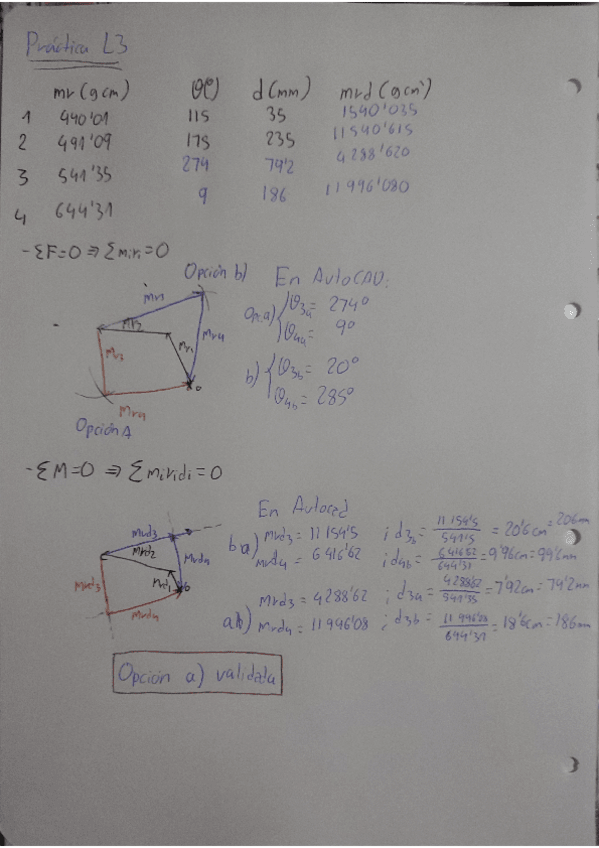 Práctica L3
mr (gcm) θ(º) d(mm) mrd (gcm²)
1 440'01 115 35 1540'035
2 491'09 175 235 11540'615
3 541'35 274 79'2 4288'620
4 644'31 9 186 11996'080
- ΣF=0 ⇒ Σmiri=0
Opción b) En AutoCAD:
mr3
mr2
mr1
mr4
mr3
mr4
o
Opción A
Op.a) θ3a = 274º
θ4a = 9º
b) θ3b = 20º
θ4b = 285º
- ΣM=0 ⇒ Σmiridi=0
En Autocad
mrd3
mrd2
mrd1
mrd4
mrd3
mrd4
b) mrd3 = 11154'5 ; d3b = 11154'5/541'5 = 20'6cm = 206mm
mrd4 = 6416'62 ; d4b = 6416'62/644'31 = 9'96cm = 99'2mm
mrd3 = 4288'62 ; d3a = 4288'62/541'35 = 7'92cm = 79'2mm
a) mrd4 = 11996'08 ; d3b = 11996'08/644'31 = 18'6cm = 186mm
Opción a) validada